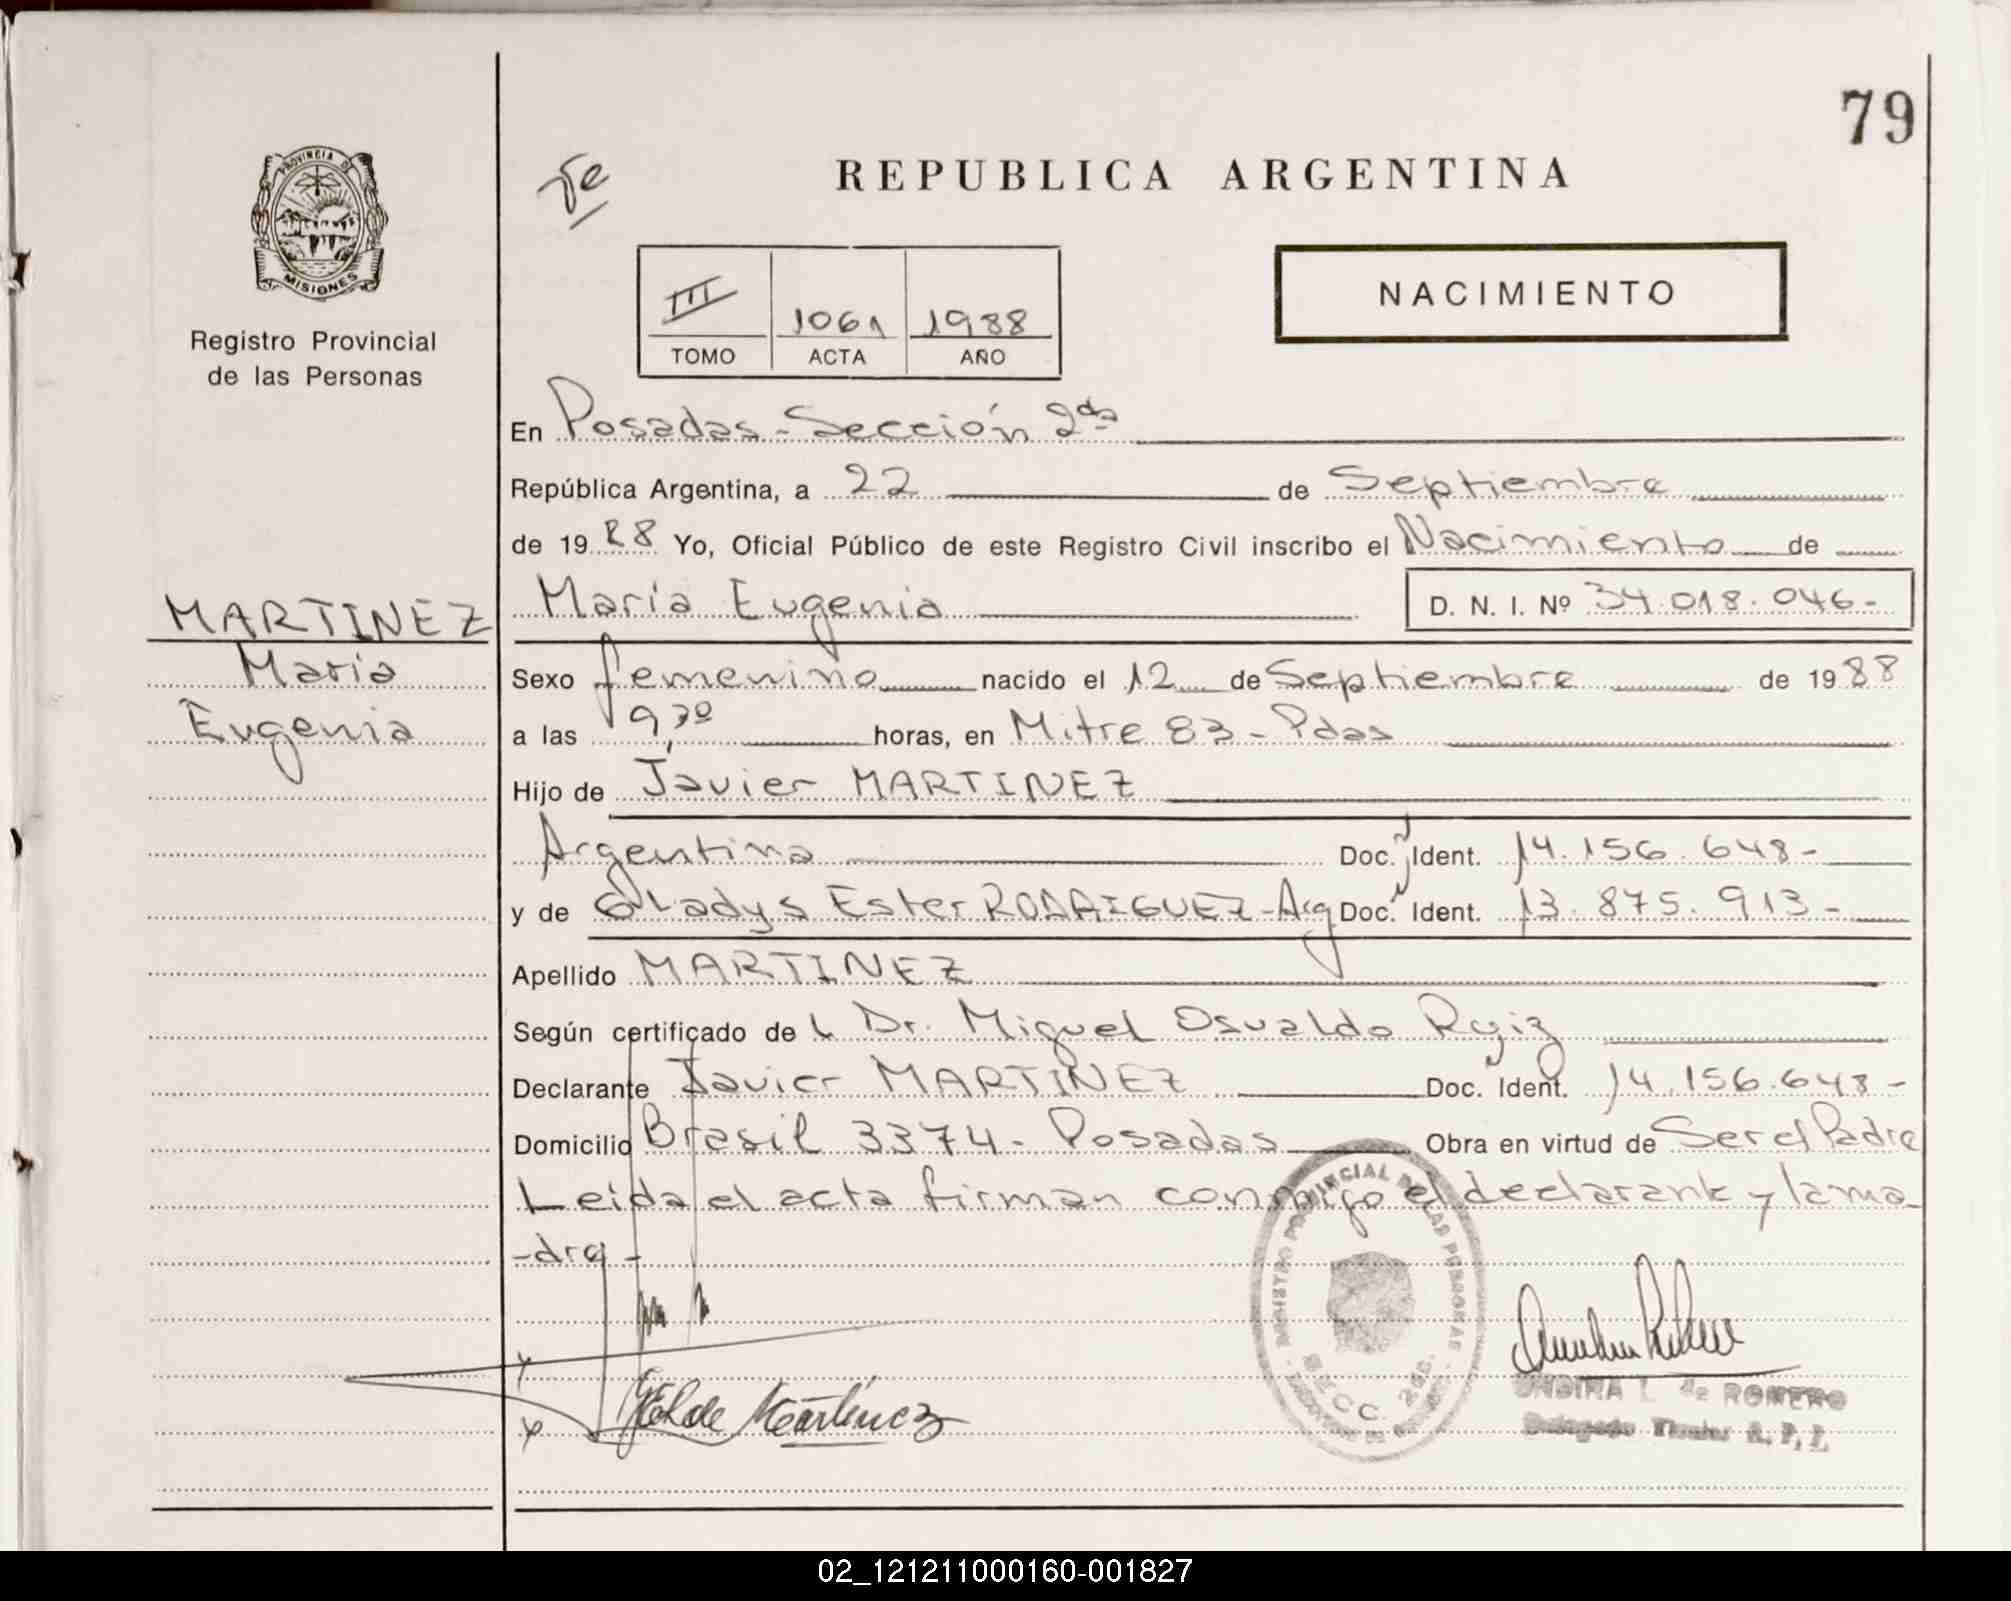 79
PROVINCIA DE
MISIONES
Registro Provincial
de las Personas
REPUBLICA ARGENTINA
NACIMIENTO
III 1061 1988
TOMO ACTA AÑO
En Posadas - Sección 2da
República Argentina, a 22 de Septiembre
de 1988 Yo, Oficial Público de este Registro Civil inscribo el Nacimiento de
MARTINEZ
María
Eugenia
María Eugenia D. N. I. Nº 34.018.046-
Sexo femenino nacido el 12 de Septiembre de 1988
a las 9,30 horas, en Mitre 83 - Pdas
Hijo de Javier MARTINEZ
Argentino Doc. Ident. 14.156.648-
y de Gladys Ester RODRIGUEZ - Arg Doc. Ident. 13.875.913-
Apellido MARTINEZ
Según certificado de L Dr. Miguel Osvaldo Ruiz
Declarante Javier MARTINEZ Doc. Ident. 14.156.648-
Domicilio Brasil 3374 - Posadas Obra en virtud de Ser el Padre
Leida el acta firman conmigo el declarante y la ma-
-dre -
REGISTRO PROVINCIAL DE LAS PERSONAS
Martinez
L. de ROMERO
Delegado Titular R. P. P.
02_121211000160-001827